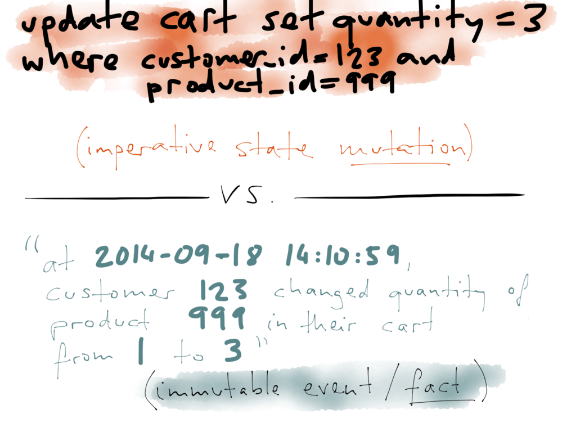 update cart set quantity = 3
where customer_id=123 and
product_id=999
(imperative state mutation)
vs.
"at 2014-09-18 14:10:59,
customer 123 changed quantity of
product 999 in their cart
from 1 to 3"
(immutable event / fact)